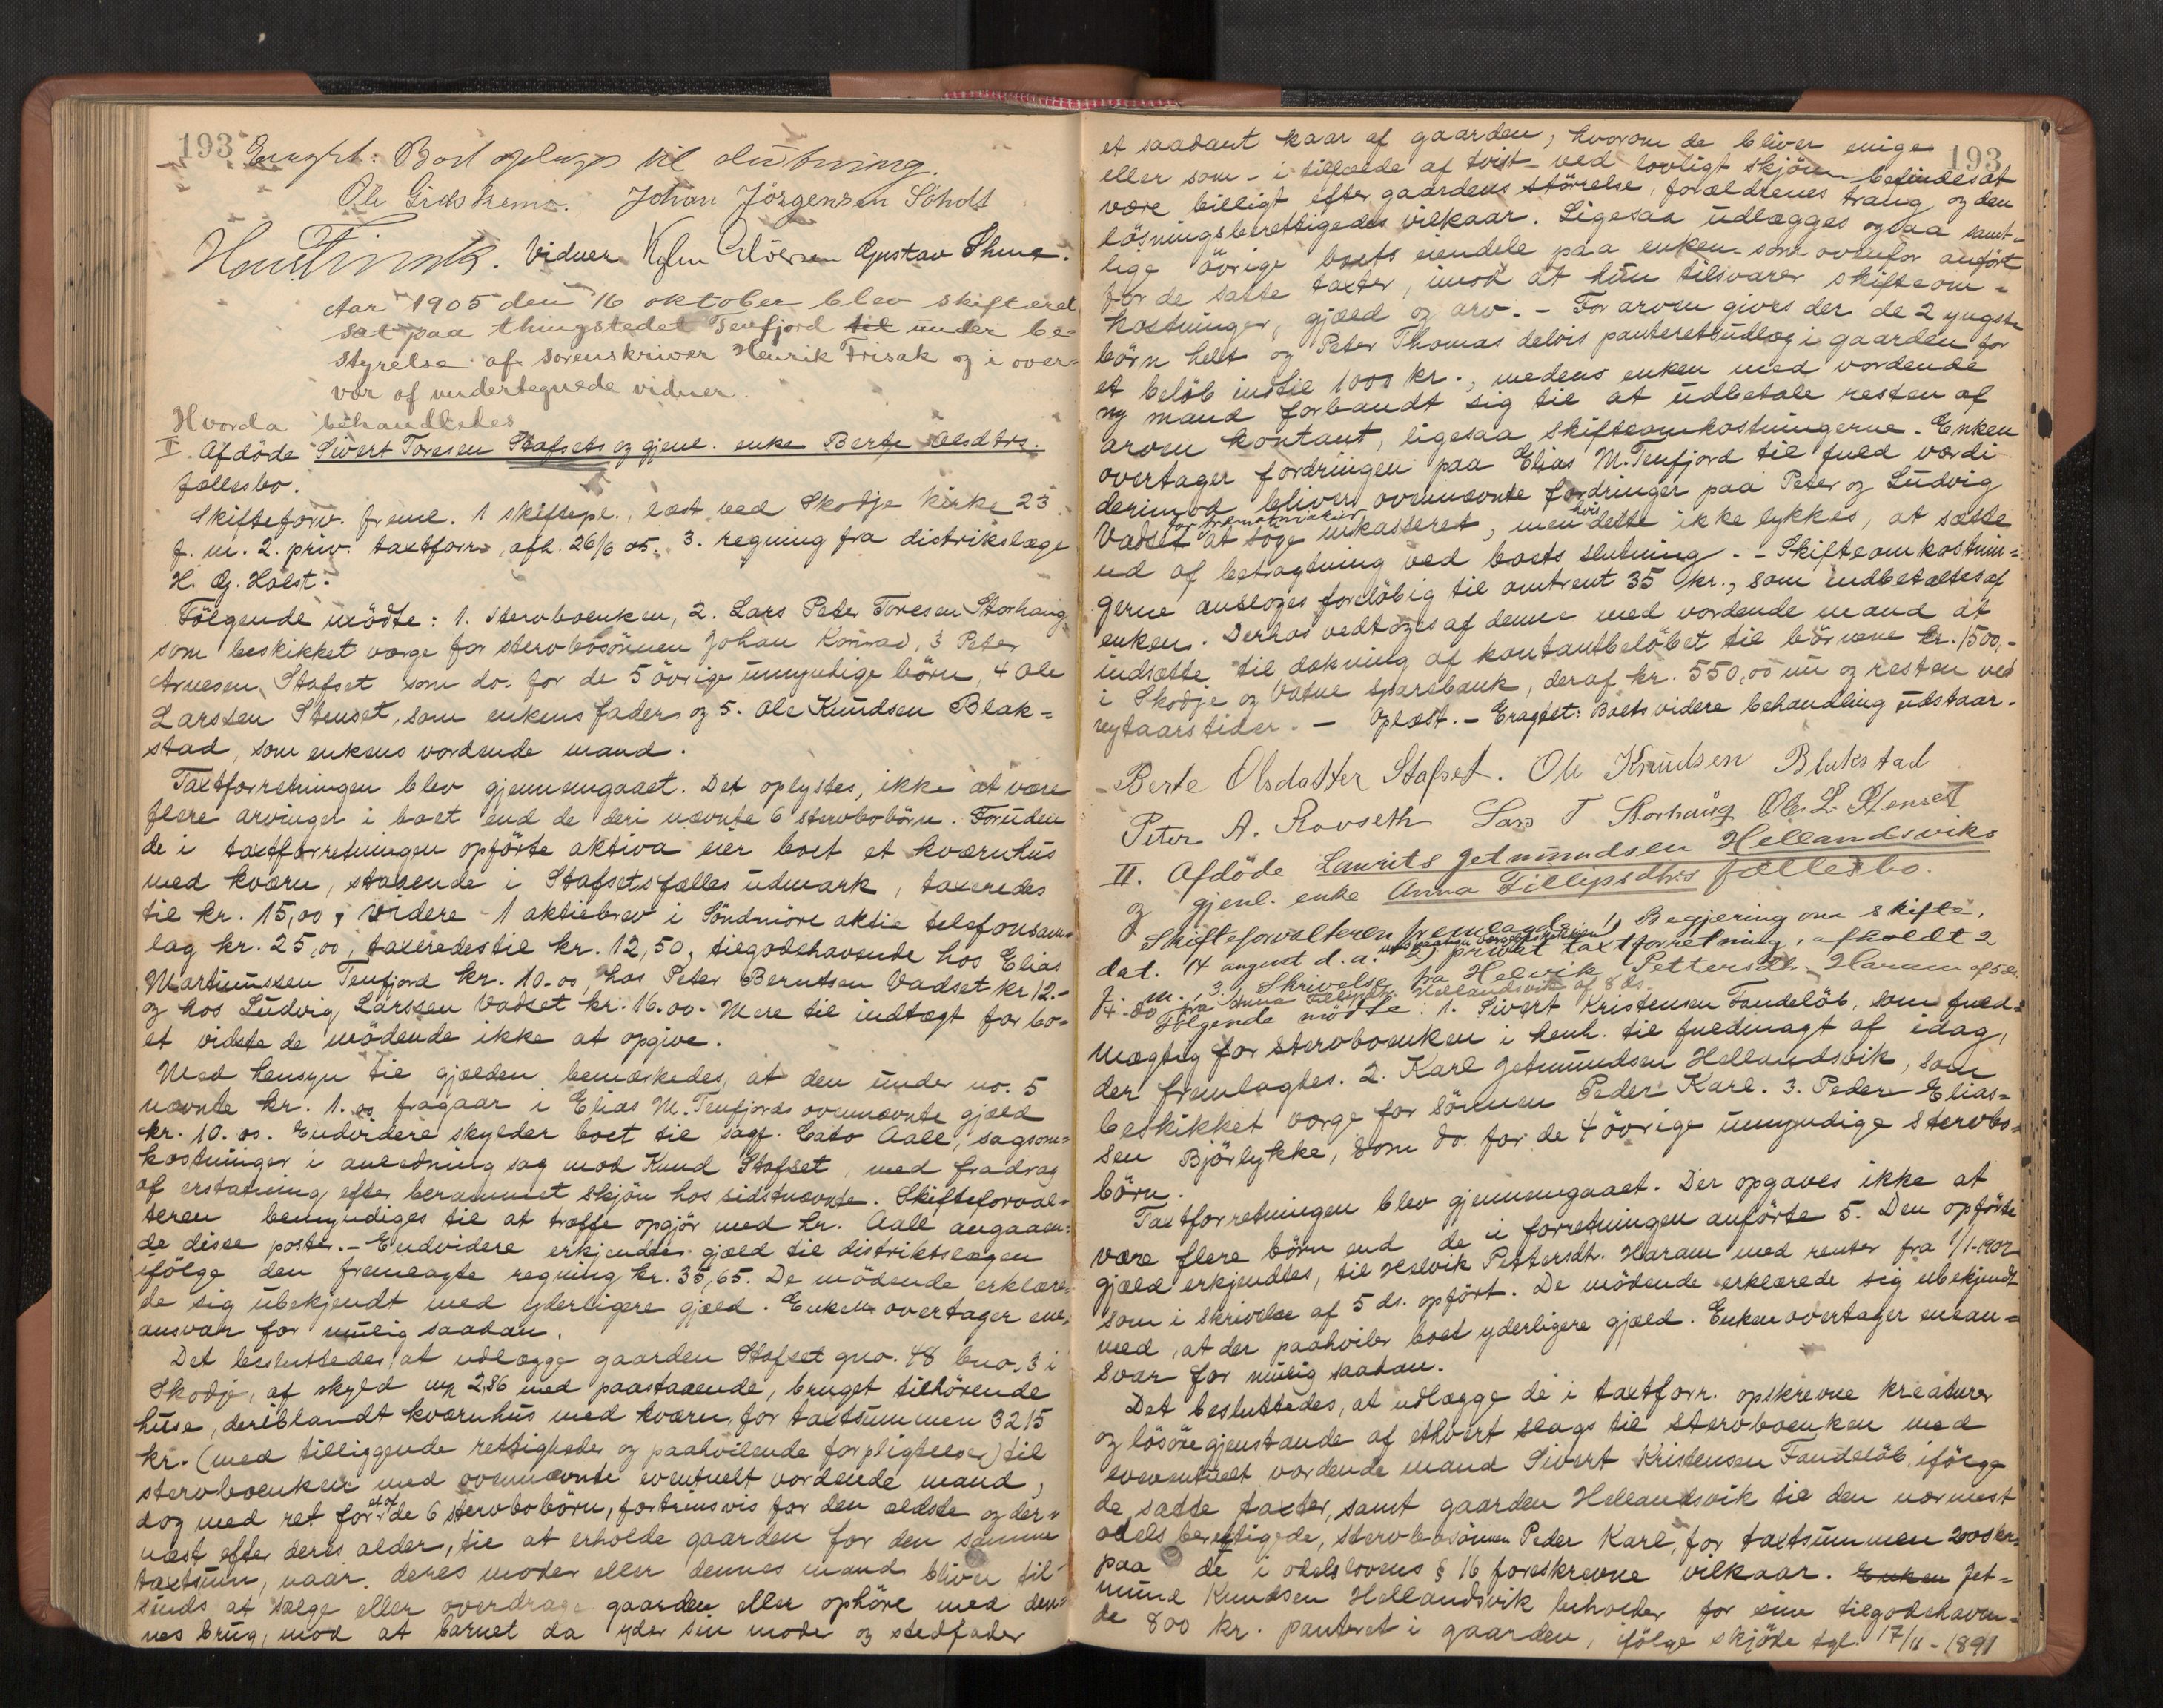 193
Eragtet: Boet optages til slutning.
Ole Gidskemo. Johan Jörgensen Scholt
Hen Frisak. Vidner Gustav
Aar 1905 den 16 oktober blev skifteret
sat paa thingstedet Tenfjord til under be-
styrelse af sorenskriver Henrik Frisak og i over-
vær af undertegnede vidner.
Hvorda behandledes
I. Afdöde Sivert Toresen Stafsets og gjenl. enke Berte Olsdtrs.
fællesbo.
Skifteforv. freml. 1 skiftepl., læst ved Skodje kirke 23
f. m. 2. priv. taxtforr., afh. 26/6 05. 3. regning fra distrikslæge
H. G. Holst.
Fölgende mödte: 1. stervboenken, 2. Lars Peter Toresen Storhaug
som beskikket værge for stervbosönnen Johan Konrad, 3 Peter
Arnesen Stafset som do. for de 5 övrige umyndige börn, 4 Ole
Larssen Stenset, som enkens fader og 5. Ole Knudsen Blak=
stad, som enkens vordende mand.
Taxtforretningen blev gjennemgaaet. Det oplystes, ikke at være
flere arvinger i boet end de deri nævnte 6 stervbobörn. Foruden
de i taxtforretningen opförte aktiva eier boet et kværnhus
med kværn, staaende i Stafsets fælles udmark, taxeredes
til kr. 15,00, videre 1 aktiebrev i Söndmöre aktie telefonsam-
lag kr. 25,00, taxeredes til kr. 12,50, tilgodehavende hos Elias
Martinussen Tenfjord kr. 10.00, hos Peter Berntsen Vadset kr 12.-
og hos Ludvig Larssen Vadset kr. 16.00. Mere til indtægt for bo-
et vidste de mödende ikke at opgive.
Med hensyn til gjælden bemærkedes, at den under no. 5
nævnte kr. 1.00 fragaar i Elias M. Tenfjords ovennævnte gjæld
kr. 10.00. Endvidere skylder boet til sagf. Cato Aall, sagsom=
kostninger i anledning sag mod Knud Stafset, med fradrag
af erstatning efter berammet skjön hos sidstnævnte. Skifteforval-
teren bemyndiges til at træffe opgjör med hr. Aall angaaen=
de disse poster. - Endvidere erkjendtes gjæld til distriktslægen
ifölge den fremlagte regning kr. 35,65. De mödende erklære-
de sig ubekjendt med yderligere gjæld. Enken overtager ene-
ansvar for mulig saadan.
Det besluttedes at udlægge gaarden Stafset gno. 48 bno. 3 i
Skodje, af skyld mk 2,86 med paastaaende, bruget tilhörende
huse, deriblandt kværnhus med kværn, for taxtsummen 3215
kr. (med tilliggende rettigheder og paahvilende forpligtelser) til
stervboenken med ovennævnte eventuelt vordende mand,
dog med ret for et af de 6 stervbobörn, fortrinsvis for den ældste og der-
næst efter deres alder, til at erholde gaarden for den samme
taxtsum, naar deres moder eller dennes mand bliver til-
sinds at sælge eller overdrage gaarden eller ophöre med den-
nes brug, mod at barnet da yder sin moder og stedfader
193
et saadant kaar af gaarden, hvorom de bliver enige
eller som - i tilfælde af tvist - ved lovligt skjön befindes at
være billigt efter gaardens störrelse, forældrenes trang og den
lösningsberettigedes vilkaar. Ligesaa udlægges ogsaa samt-
lige övrige boets eiendele paa enken som ovenfor anfört
for de satte taxter, imod at hun tilsvarer skifteom=
kostninger, gjæld og arv. - For arven gives der de 2 yngste
börn helt og Peter Thomas delvis panteretsudlæg i gaarden for
et belöb indtil 1000 kr., medens enken med vordende
ny mand forbandt sig til at udbetale resten af
arven kontant, ligesaa skifteomkostningerne. Enken
overtager fordringen paa Elias M. Tenfjord til fuld værdi
derimod bliver ovennævnte fordringer paa Peter og Ludvig
Vadset at söge inkasseret, men hvis dette ikke lykkes, at sætte
ud af betragtning ved boets slutning. - Skifteomkostnin=
gerne ansloges forelöbig til omtrent 35 kr., som indbetaltes af
enken. Derhos vedtoges af denne med vordende mand at
indsætte til dækning af kontantbelöbet til börnene kr. 1500,-
i Skodje og Vatne sparebank, deraf kr. 550,00 nu og resten ved
nytaarstider. - Oplæst. - Eragtet: Boets videre behandling udstaar.
Berte Olsdatter Stafset. Ole Knudsen Blakstad
Peter A. Rovseth Lars T Storhaug Ole L. Stenset
II. Afdöde Laurits Jetmundsen Hellandsviks
og gjenl. enke Anna Fillipsdtrs fællesbo.
Skifteforvalteren fremlagde 1, Begjering om skifte,
dat. 14 august d. a. 2, privat taxtforretning, afholdt 2
f. m., 3, Skrivelse fra Helvik Pettersdtr. Haram af 5 ds.
4. do fra Anna Fillipsdtr. Hellandsvik af 8 ds.
Fölgende mödte: 1. Sivert Kristensen Tandelöb, som fuld=
mægtig for stervboenken i henh. til fuldmagt af idag,
der fremlagtes. 2. Karl Jetmundsen Hellandsvik, som
beskikket værge for sönnen Peder Karl. 3. Peder Elias=
sen Björlykke, som do. for de 4 övrige umyndige stervbo=
börn.
Taxtforretningen blev gjennemgaaet. Der opgaves ikke at
være flere börn end de i forretningen anförte 5. Den opförte
gjæld erkjendtes, til Helvik Pettersdtr. Haram med renter fra 1/1-1902
som i skrivelse af 5 ds. opfört. De mödende erklærede sig ubekjendt
med, at der paahviler boet yderligere gjæld. Enken overtager enean=
svar for mulig saadan.
Det besluttedes, at udlægge de i taxtforr. opskrevne kreaturer
og lösöregjenstande af ethvert slags til stervboenken med
eventuelt vordende mand Sivert Kristensen Tandelöb, ifölge
de satte taxter, samt gaarden Hellandsvik til den nærmest
odelsberettigede, stervbosönnen Peder Karl, for taxtsummen 2000 kr.
paa de i odelslovens § 16 foreskrevne vilkaar. Enken Jet=
mund Knudsen Hellandsvik beholder for sine tilgodehaven-
de 800 kr. panteret i gaarden, ifölge skjöde tgl. 17/11-1891